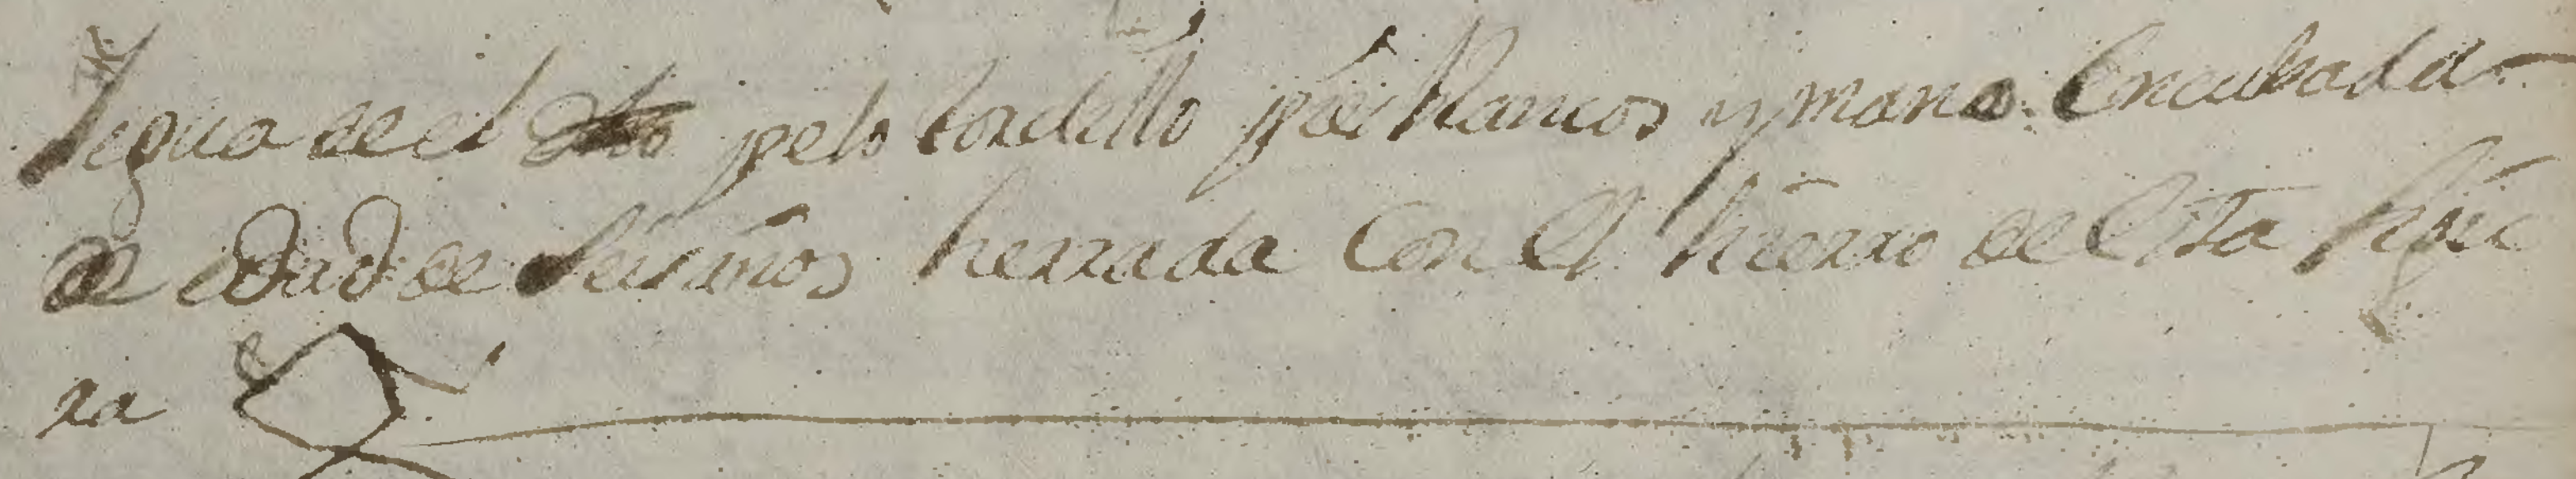 Yegua de el dho pelo tordillo pies blancos y mano. Encubada
de edad de seis años herrada Con el hierro de esta figu
ra